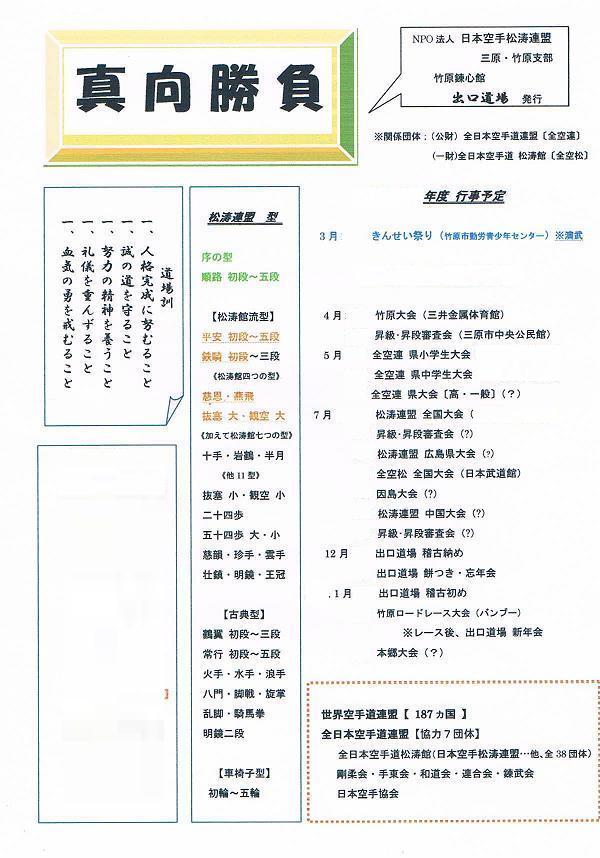 真向勝負
NPO法人 日本空手松涛連盟
三原・竹原支部
竹原錬心館
出口道場 発行
※関係団体：（公財）全日本空手道連盟〔全空連〕
（一財)全日本空手道 松涛館〔全空松〕
道場訓
一、人格完成に努むること
一、誠の道を守ること
一、努力の精神を養うこと
一、礼儀を重んずること
一、血気の勇を戒むること
松涛連盟 型
序の型
順路 初段～五段
【松涛館流型】
平安 初段～五段
鉄騎 初段～三段
《松涛館四つの型》
慈恩・燕飛
抜塞 大・観空 大
《加えて松涛館七つの型》
十手・岩鶴・半月
《他11型》
抜塞 小・観空 小
二十四歩
五十四歩 大・小
慈韻・珍手・雲手
壮鎮・明鏡・王冠
【古典型】
鶴翼 初段～三段
常行 初段～五段
火手・水手・浪手
八門・脚戦・旋掌
乱脚・騎馬拳
明鏡二段
【車椅子型】
初輪～五輪
年度 行事予定
3月： きんせい祭り（竹原市勤労青少年センター）※演武
4月： 竹原大会（三井金属体育館）
昇級・昇段審査会（三原市中央公民館）
5月 全空連 県小学生大会
全空連 県中学生大会
全空連 県大会〔高・一般〕（？）
7月 松涛連盟 全国大会（
昇級・昇段審査会（？）
松涛連盟 広島県大会（？）
全空松 全国大会（日本武道館）
因島大会（？）
松涛連盟 中国大会（？）
昇級・昇段審査会（？）
12月 出口道場 稽古納め
出口道場 餅つき・忘年会
.1月 出口道場 稽古初め
竹原ロードレース大会（バンブー）
※レース後、出口道場 新年会
本郷大会（？）
世界空手道連盟【 187ヵ国 】
全日本空手道連盟【協力7団体】
全日本空手道松涛館（日本空手松涛連盟…他、全38団体）
剛柔会・手東会・和道会・連合会・錬武会
日本空手協会